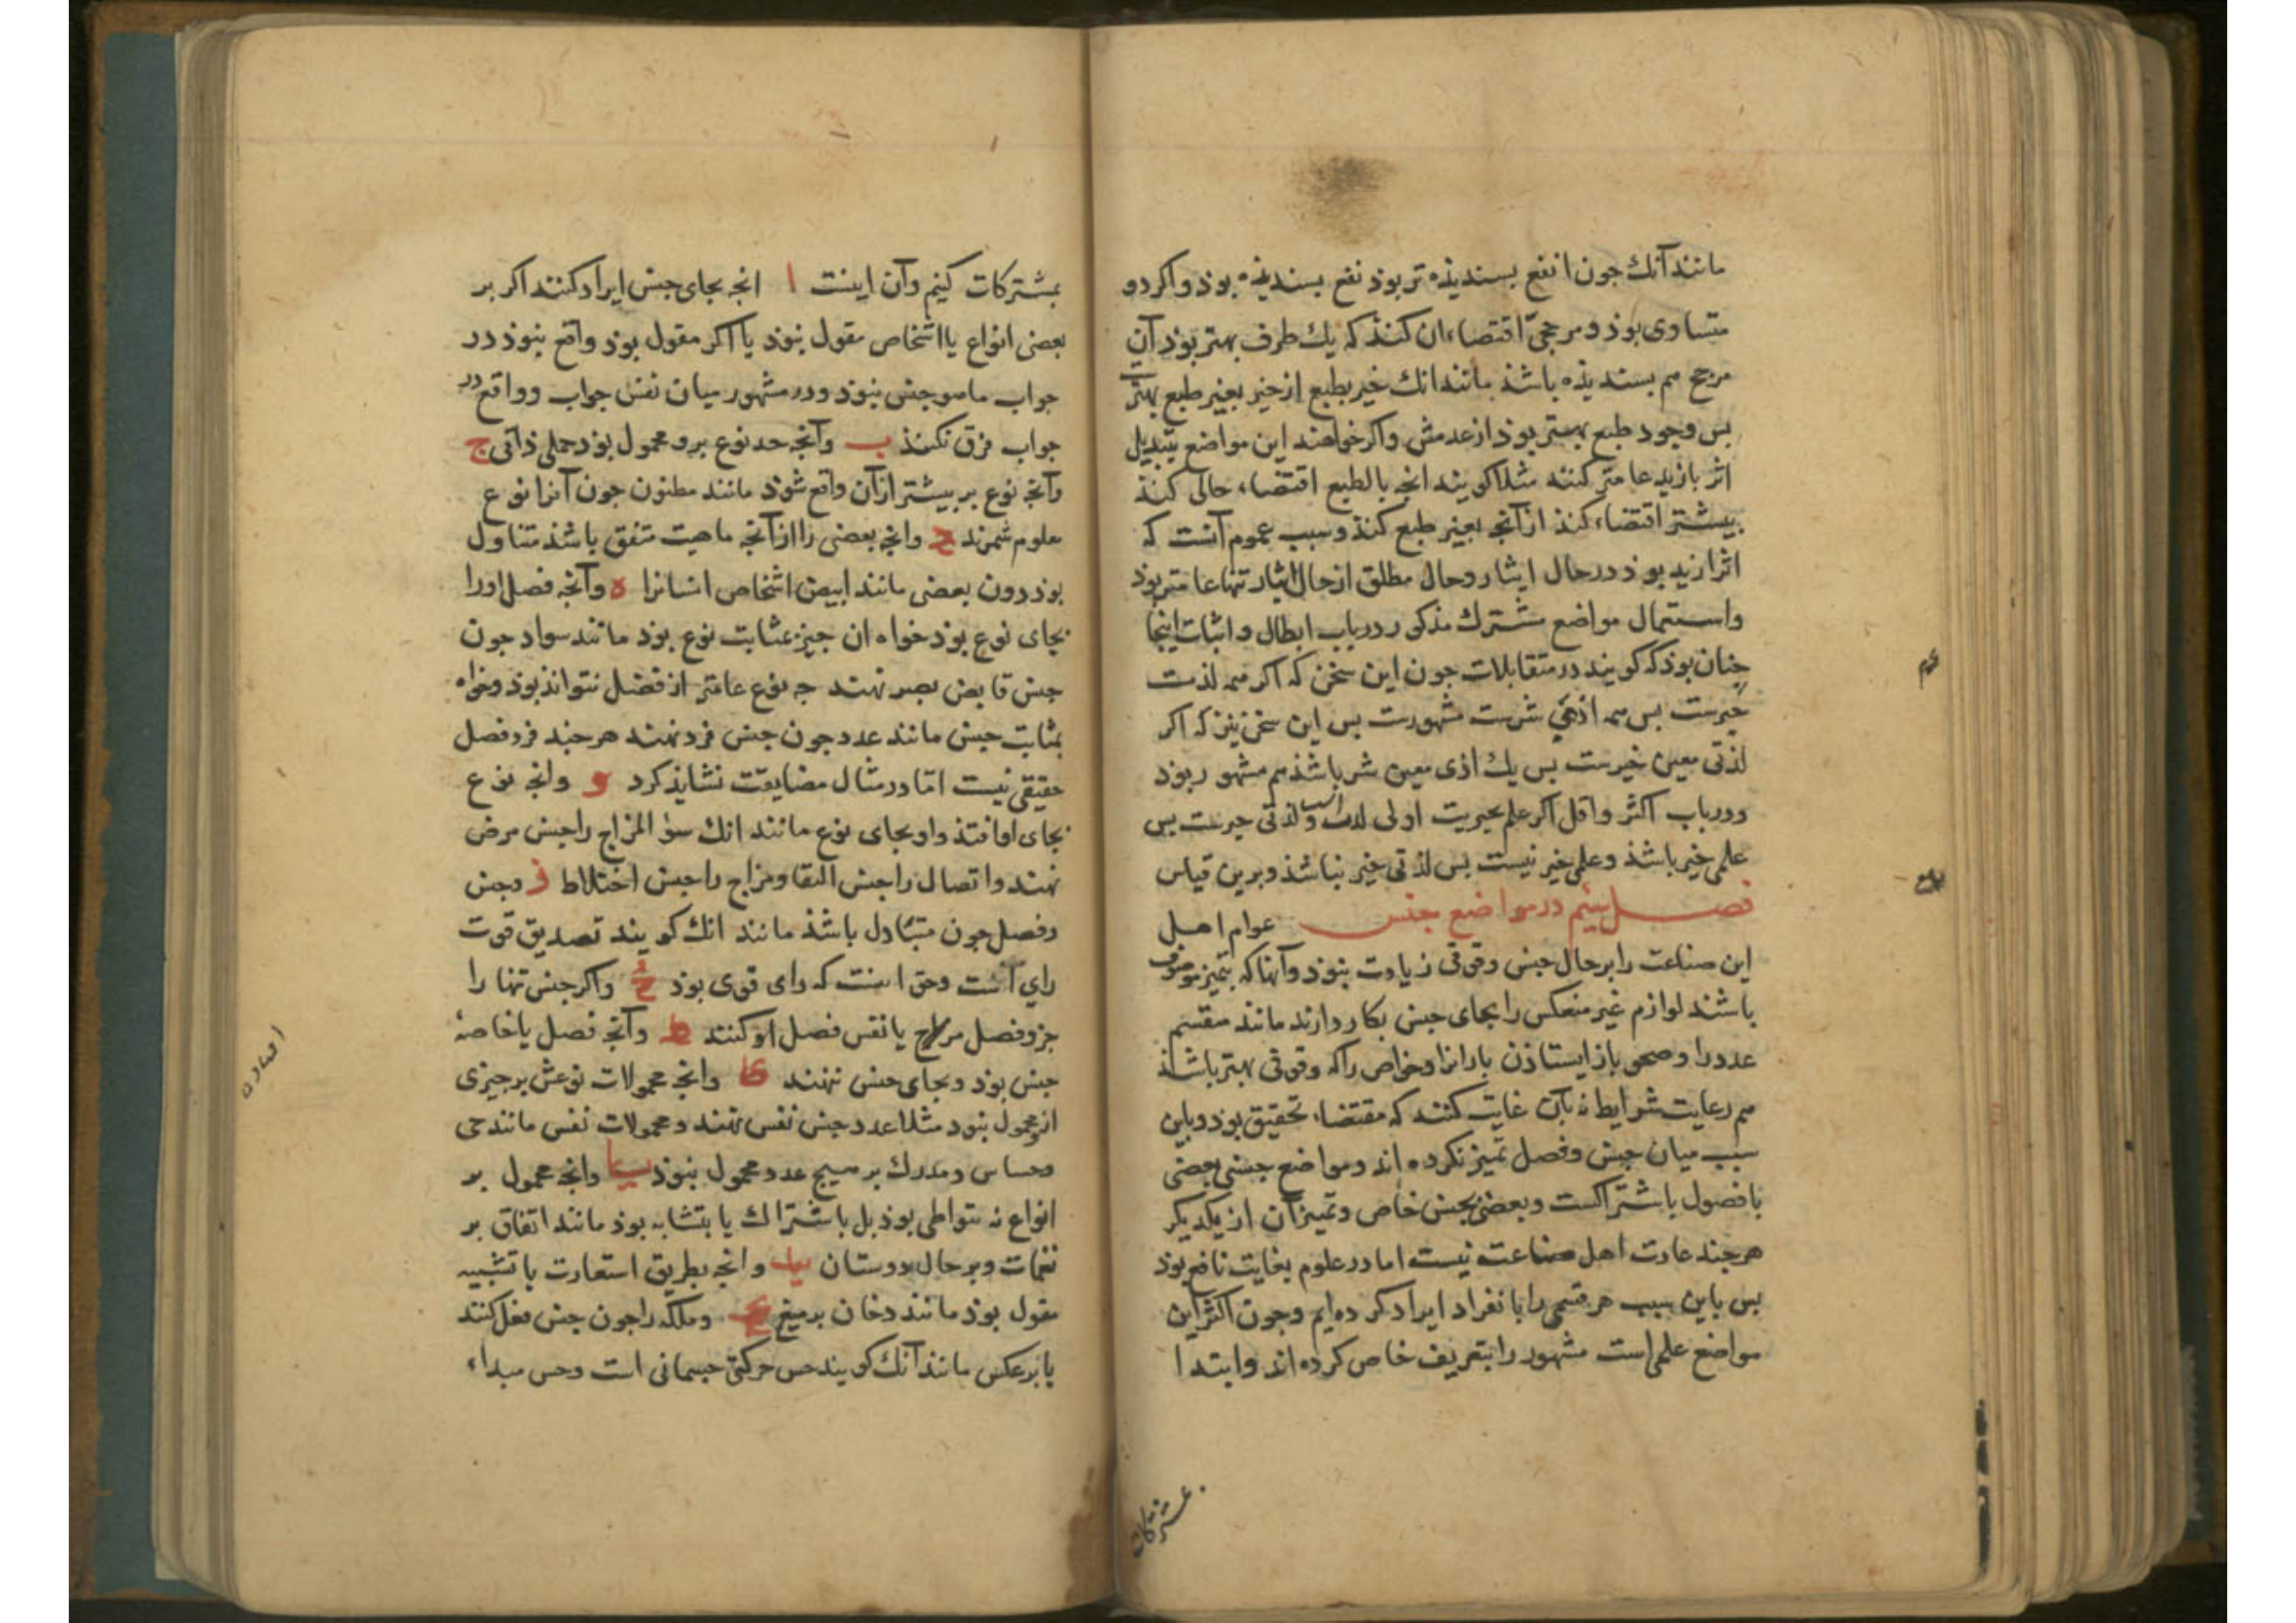 مانند آنك جون انفع بسنديذه تر بوذ نفع بسنديذه بوذ واكر دو
متساوى بوذ و مرجحىّ اقتضاء ان كنذ كه يك طرف بهتر بوذ آن
مرجح هم بسنديذه باشذ مانند انك خير بطبع از خير بغير طبع بهتر
بس وجود طبع بهتر بوذ از عدمش واكر خواهند اين مواضع بتبديل
اثر بازيد عامتر كنند مثلا كويند انجه بالطبع اقتضاء حالى كنذ
بيشتر اقتضاء كنذ از آنجه بغير طبع كنذ وسبب عموم آنست كه
اثر ازيد بوذ در حال ايثار وحال مطلق از حال ايثار تنها عامتر بوذ
واستعمال مواضع مشترك مذكور در باب ابطال و اثبات اينجا
جنان بوذ كه كويند در متقابلات جون اين سخن كه اكر همه لذت
خيرست بس همه اذى شرست مشهورست بس اين سخن نيز كه اكر
لذتى معين خيرست بس يك اذى معين شر باشذ هم مشهور بوذ
ودر باب اكثر واقل اكر علم بخيريت اولى ولذتى خيرست بس
علمى خير باشذ وعلمى خير نيست بس لذتى خير نباشذ وبرين قياس
فصل سيم در مواضع جنس عوام اهل
اين صناعت را بر حال جنس وقوفى زيادت نبوذ وآنها كه بتميز موصوف
باشند لوازم غير منعكس را بجاى جنس بكار دارند مانند منقسم
عدد را وصحو باز ايستاذن بارانرا وخواص را كه وقوفى بهتر باشذ
هم رعايت شرايط نه بآن غايت كنند كه مقتضاء تحقيق بوذ وباين
سبب ميان جنس وفصل تميز نكرده اند ومواضع جنسى بعضى
با فصول باشتراكست وبعضى بجنس خاص وتميز آن از يكديكر
هرجند عادت اهل صناعت نيست اما در علوم بغايت نافع بوذ
بس باين سبب هر قسمى را بانفراد ايراد كرده ايم وجون اكثر اين
مواضع علمى است مشهور را بتعريف خاص كرده اند وابتدا
بمشتركات
بمشتركات كنيم وآن اينست ا انجه بجاى جنس ايراد كنند اكر بر
بعضى انواع يا اشخاص مقول نبوذ يا اكر مقول بوذ واقع نبوذ در
جواب ماهو جنس نبوذ ودر مشهور ميان نفس جواب وواقع در
جواب فرق نكنند ب وآنجه حد نوع برو محمول بوذ حملى ذاتى ج
وآنجه نوع بر بيشتر از آن واقع شوذ مانند مظنون جون آنرا نوع
معلوم شمرند وانجه بعضى را از آنجه ماهيت متفق باشذ متناول
بوذ دون بعضى مانند ابيض اشخاص انسانرا ه وآنجه فصل اورا
بجاى نوع بوذ خواه ان جيز بمثابت نوع بوذ مانند سواد جون
جنس قابض بصر نهند جه نوع عامتر از فصل نتواند بوذ وخواه
بمثابت جنس مانند عدد جون جنس فرد نهند هرجند فرد فصل
حقيقى نيست امّا در مثال مضايقت نشايذ كرد و وانجه نوع
بجاى او افتذ واو بجاى نوع مانند انك سوء المزاج را جنس مرض
نهند واتصال را جنس التقا ومزاج را جنس اختلاط ز وجنس
وفصل جون متبادل باشذ مانند انك كويند تصديق قوت
راى آنست وحق اينست كه راى قوى بوذ ح واكر جنس تنها را
جزو فصل يا نفس فصل او كنند ط وآنجه فصل يا خاصهٔ
جنس بوذ وبجاى جنس نهند وانجه محمولات نوعش بر جيزى
از محمول نبود مثلا عدد جنس نفس نهند ومحمولات نفس مانند حى
وحساس ومدرك بر هيج عدد محمول نبوذ يا وانجه محمول بر
انواع نه بتواطى بوذ بل باشتراك يا بتشابه بوذ مانند اتفاق بر
نغمات وبر حال دوستان يب وانجه بطريق استعارت يا تشبيه
مقول بوذ مانند دخان بر ميغ يج وملكه را جون جنس فعل كنند
يا بر عكس مانند آنك كويند حس حركتى جسمانى است وحس مبداء